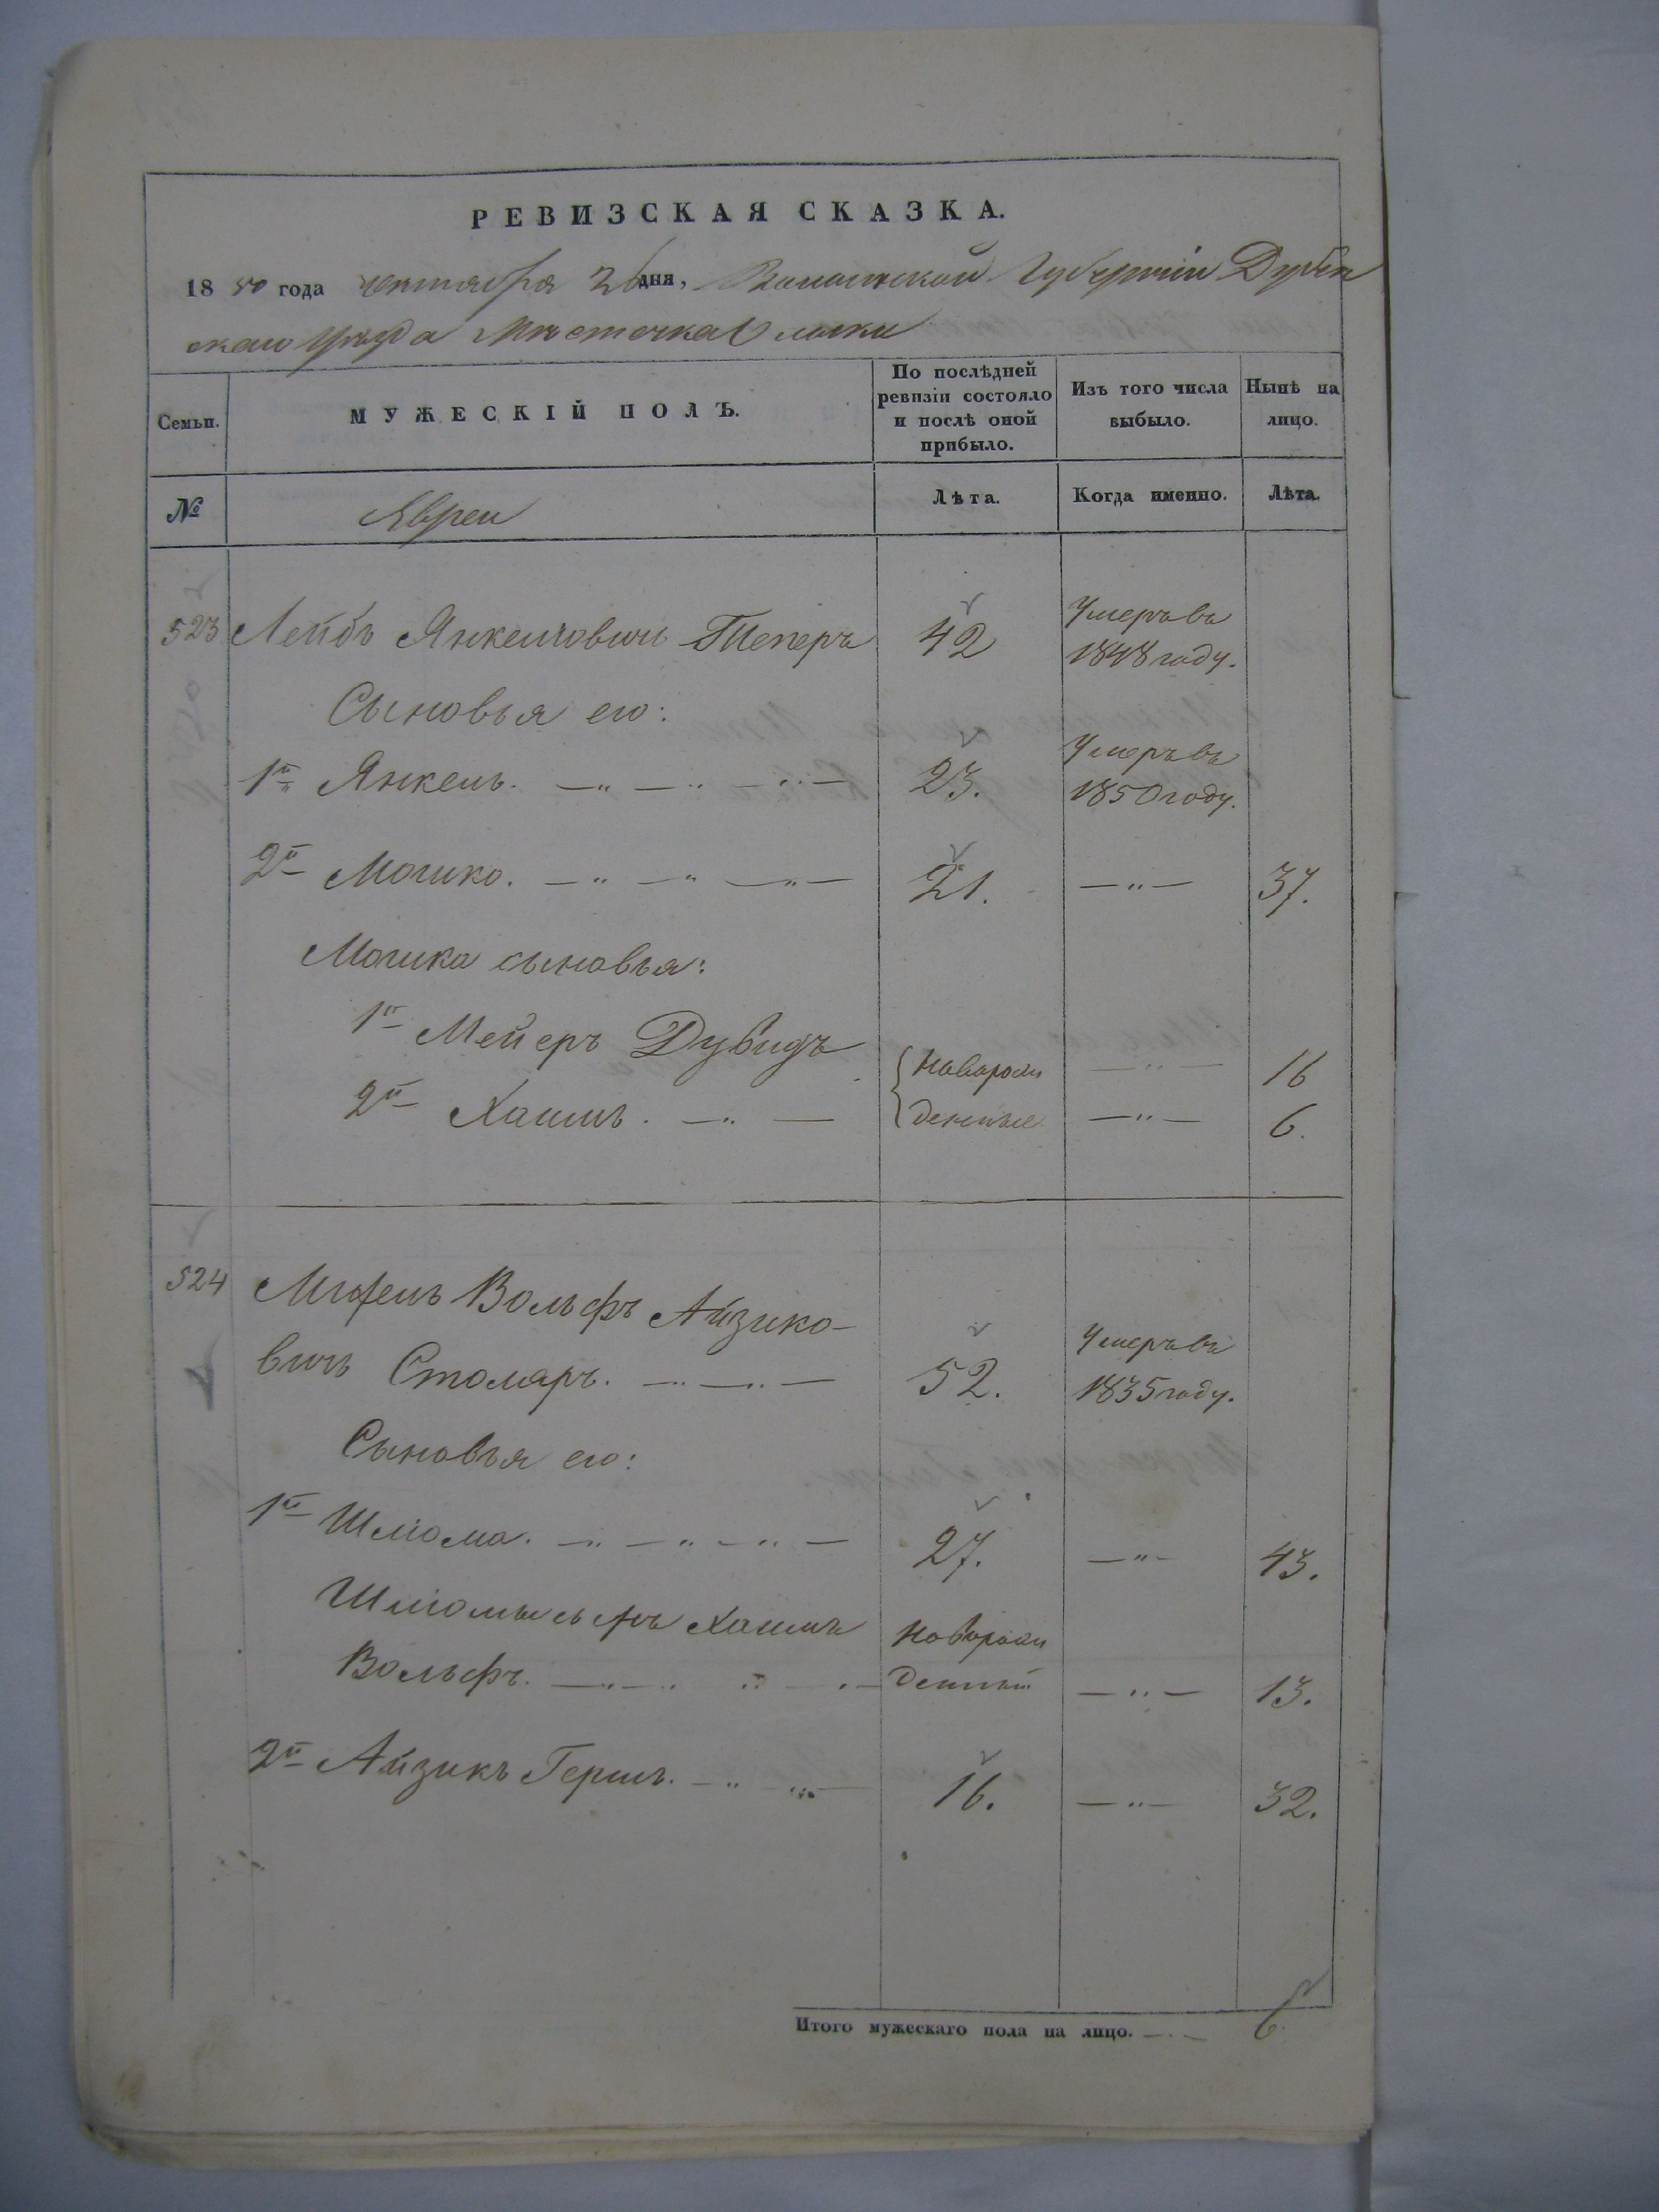 РЕВИЗСКАЯ СКАЗКА.
1850 года сентября 26 дня, Волынской Губерніи Дубен
скаго Уѣзда Мѣстечка Олыки
Семьи. МУЖЕСКІЙ ПОЛЪ. По послѣдней ревизіи состояло и послѣ оной прибыло. Изъ того числа выбыло. Нынѣ на лицо.
№ Евреи Лѣта. Когда именно. Лѣта.
523 Лейбъ Янкелювичъ Теперъ 42 Умеръ въ 1848 году.
Сыновья его:
1й Янкель. 23. Умеръ въ 1850 году.
2й Мошко. 21. 37.
Мошка сыновья:
1й Мейеръ Дувидъ Новорож 16
2й Хаимъ. денные 6.
524 Вольфъ Айзико-
вичъ Столяръ. 52. Умеръ въ 1835 году.
Сыновья его:
1й Шліома. 27. 43.
Шліомы сынъ Хаимъ Новорож
Вольфъ. денный 13.
2й Айзикъ Гершъ. 16. 32.
Итого мужескаго пола на лицо. 6.